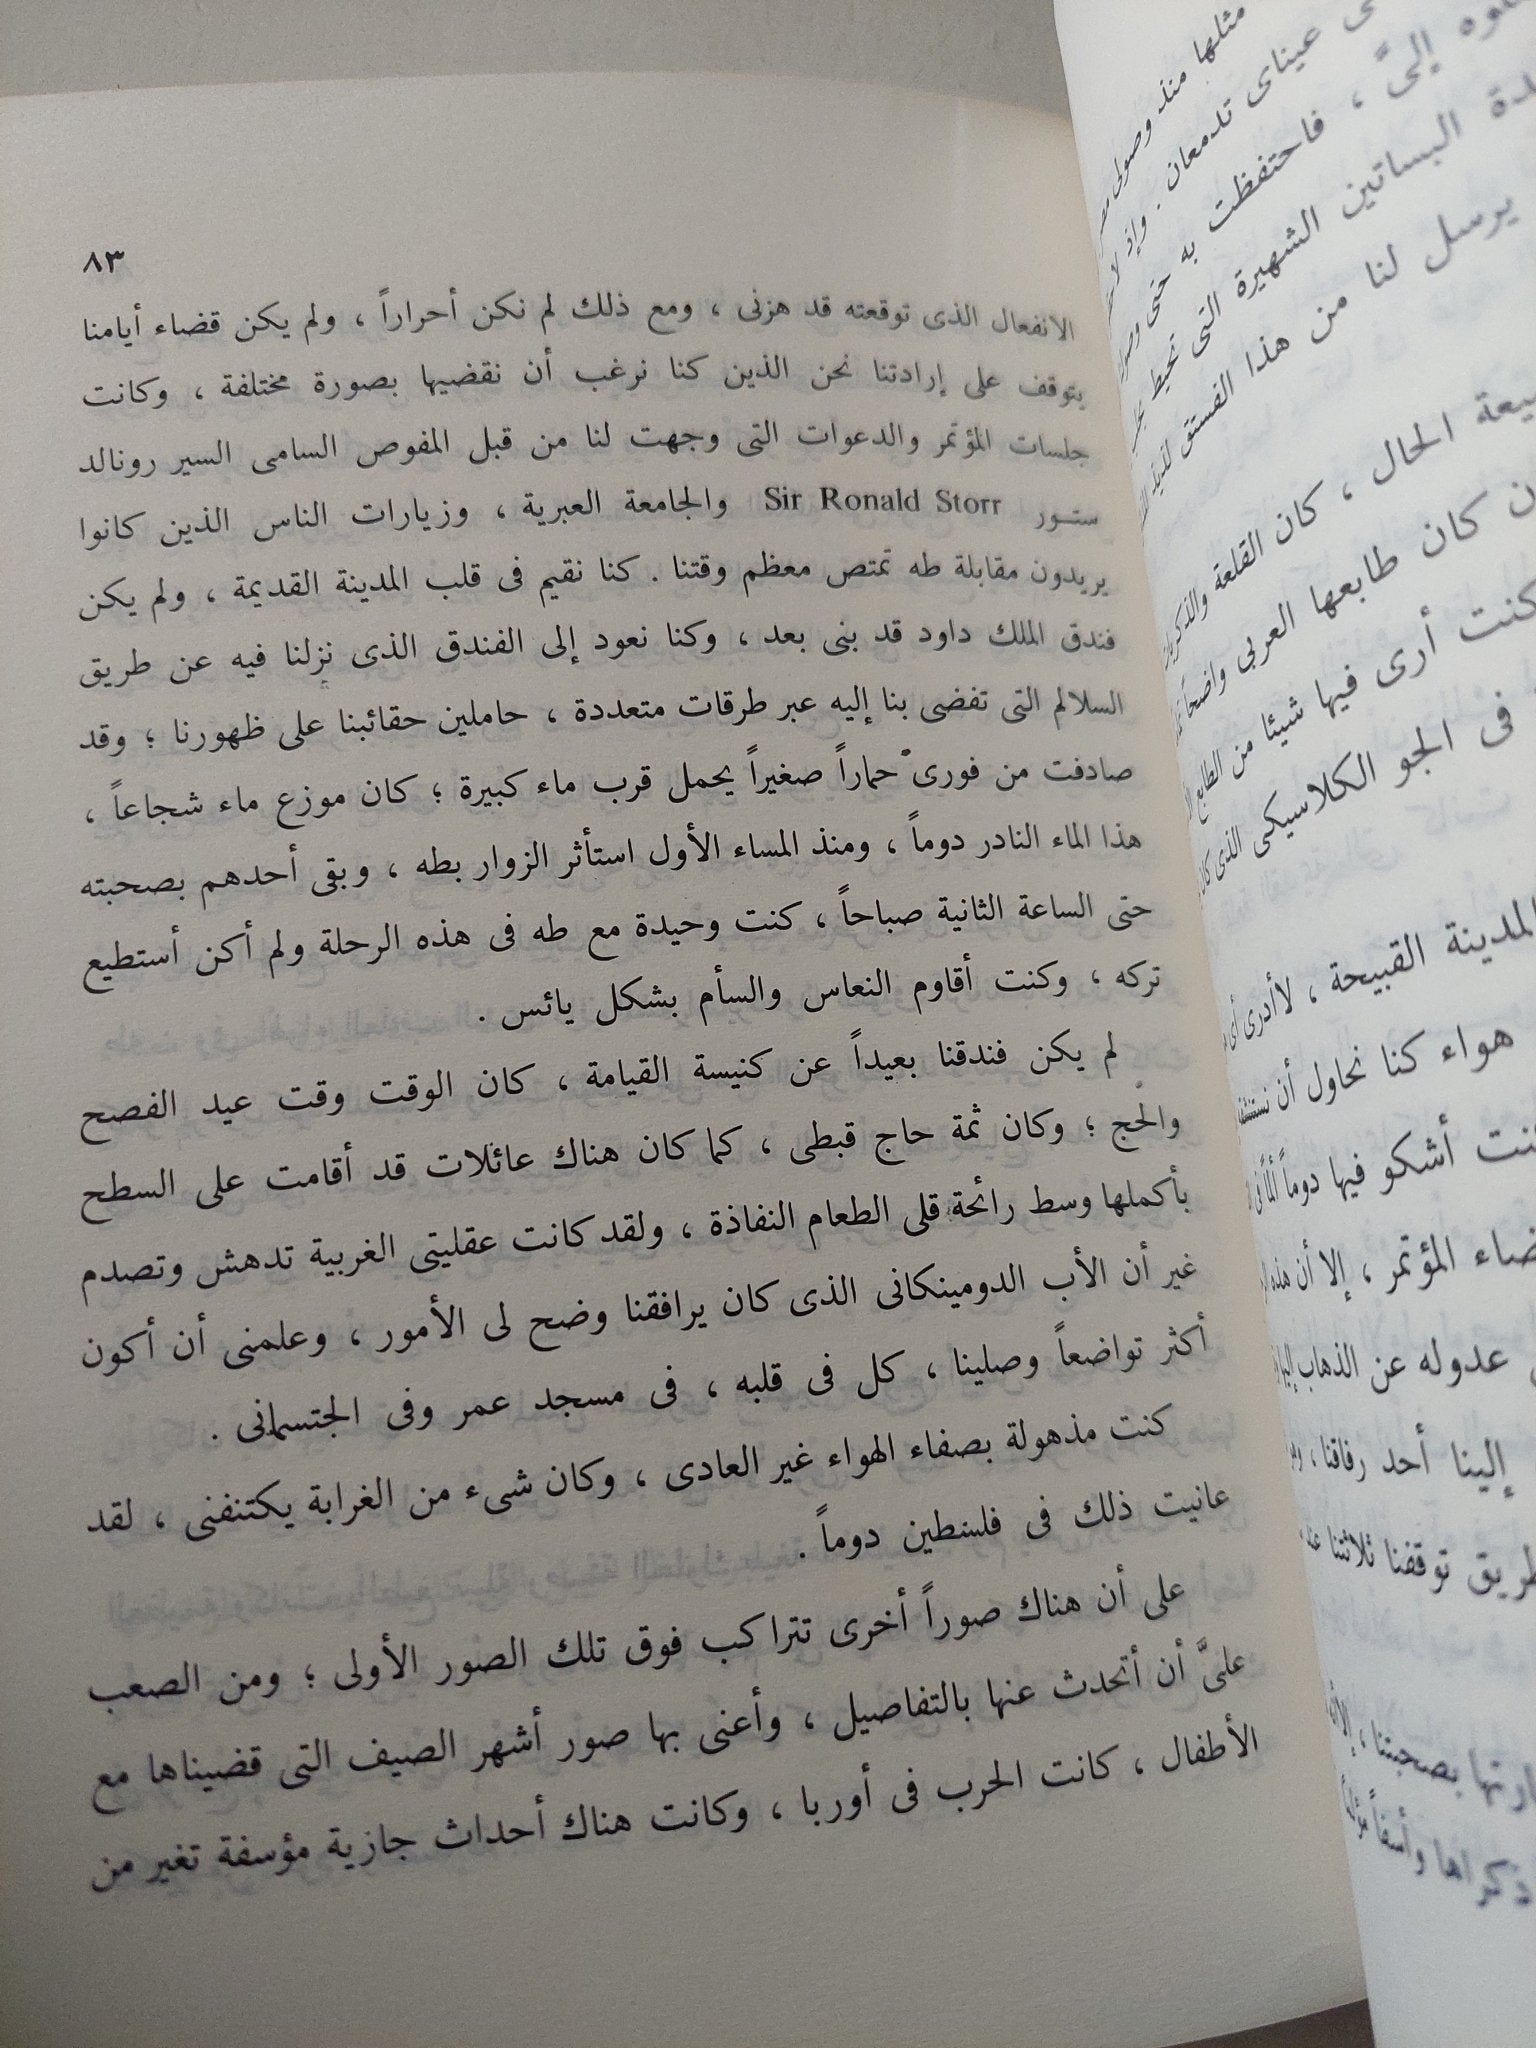 ٨٣
الانفعال الذى توقعته قد هزنى ، ومع ذلك لم نكن أحراراً ، ولم يكن قضاء أيامنا
يتوقف على إرادتنا نحن الذين كنا نرغب أن نقضيها بصورة مختلفة ، وكانت
جلسات المؤتمر والدعوات التى وجهت لنا من قبل المفوص السامى السير رونالد
ستــور Sir Ronald Storr والجامعة العبرية ، وزيارات الناس الذين كانوا
يريدون مقابلة طه تمتص معظم وقتنا . كنا نقيم فى قلب المدينة القديمة ، ولم يكن
فندق الملك داود قد بنى بعد ، وكنا نعود إلى الفندق الذى نزلنا فيه عن طريق
السلالم التى تفضى بنا إليه عبر طرقات متعددة ، حاملين حقائبنا على ظهورنا ؛ وقد
صادفت من فورى حماراً صغيراً يحمل قرب ماء كبيرة ؛ كان موزع ماء شجاعاً ،
هذا الماء النادر دوماً ، ومنذ المساء الأول استأثر الزوار بطه ، وبقى أحدهم بصحبته
حتى الساعة الثانية صباحاً ، كنت وحيدة مع طه فى هذه الرحلة ولم أكن أستطيع
تركه ، وكنت أقاوم النعاس والسأم بشكل يائس .
لم يكن فندقنا بعيداً عن كنيسة القيامة ، كان الوقت وقت عيد الفصح
والحج ؛ وكان ثمة حاج قبطى ، كما كان هناك عائلات قد أقامت على السطح
بأكملها وسط رائحة قلى الطعام النفاذة ، ولقد كانت عقليتى الغربية تدهش وتصدم
غير أن الأب الدومينكانى الذى كان يرافقنا وضح لى الأمور ، وعلمنى أن أكون
أكثر تواضعاً وصلينا ، كل فى قلبه ، فى مسجد عمر وفى الجتسمانى .
كنت مذهولة بصفاء الهواء غير العادى ، وكان شىء من الغرابة يكتنفنى ، لقد
عانيت ذلك فى فلسطين دوماً .
على أن هناك صوراً أخرى تتراكب فوق تلك الصور الأولى ؛ ومن الصعب
علىَّ أن أتحدث عنها بالتفاصيل ، وأعنى بها صور أشهر الصيف التى قضيناها مع
الأطفال ، كانت الحرب فى أوربا ، وكانت هناك أحداث جازية مؤسفة تغير من
مثلها منذ وصولى
عيناى تدمعان . وإذ
إلىَّ ، فاحتفظت به حتى
البساتين الشهيرة التى تحيط
يرسل لنا من هذا الفستق لذيذ
الحال ، كان القلعة
كان طابعها العربى واضحاً
كنت أرى فيها شيئا من الطابع
فى الجو الكلاسيكى الذى
المدينة القبيحة ، لاأدرى أى
هواء كنا نحاول أن
أشكو فيها دوماً
المؤتمر ، إلا أن هذه
عدوله عن الذهاب
إلينا أحد رفاقنا ،
توقفنا ثلاثتنا
بصحبتنا ،
ذكراها وأسفاً